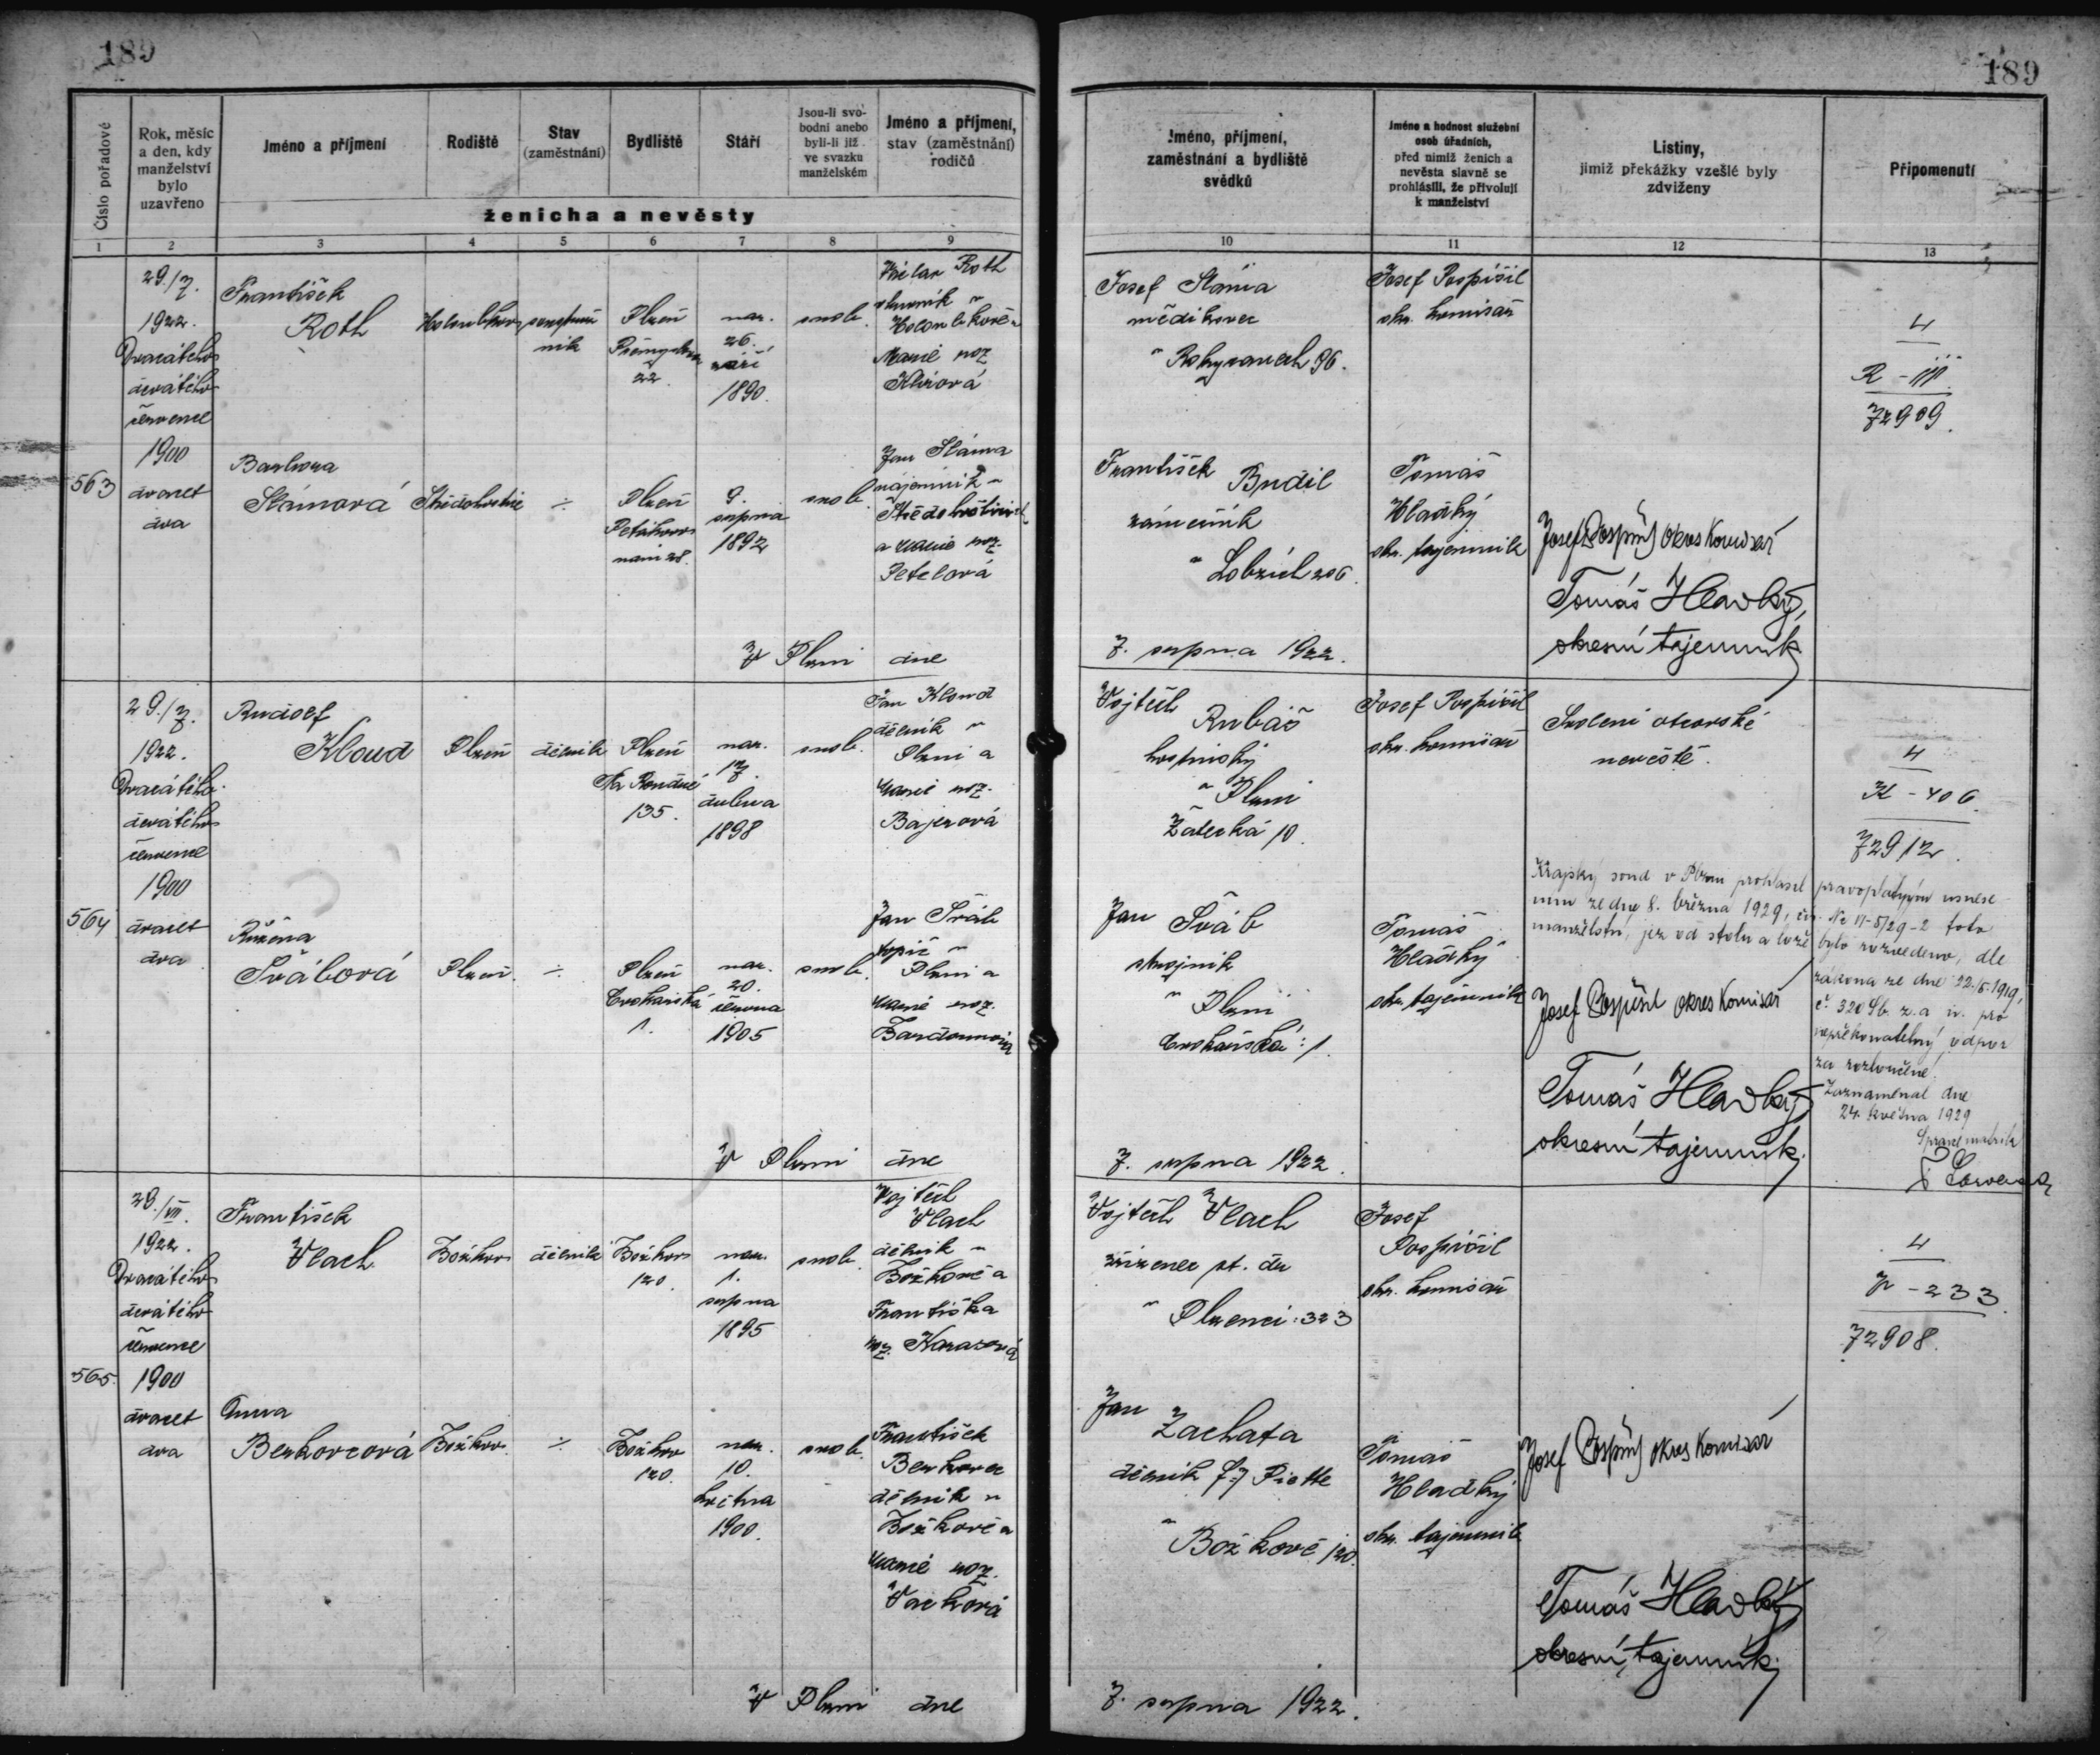 189
189
Číslo pořadové
Rok, měsíc
a den, kdy
manželství
bylo
uzavřeno
Jméno a příjmení
Rodiště
Stav
(zaměstnání)
Bydliště
Stáří
Jsou-li svo-
bodni anebo
byli-li již
ve svazku
manželském
Jméno a příjmení,
stav (zaměstnání)
rodičů
ženicha a nevěsty
Jméno, příjmení,
zaměstnání a bydliště
svědků
Jméno a hodnost služební
osob úřadních,
před nimiž ženich a
nevěsta slavně se
prohlásili, že přivolují
k manželství
Listiny,
jimiž překážky vzešlé byly
zdviženy
Připomenutí
1
2
3
4
5
6
7
8
9
10
11
12
13
563
29./7.
1922.
Dvacátého
devátého
července
1900
dvacet
dva
František
Roth
Plzeň
22.
nar.
26.
září
1890.
svob.
Roth
Marie roz.
Josef Sláma
mědikovec
v Rokycanech 96.
Josef Pospíšil
okr. komisař
4
R - III.
72909.
Barbora
Slámová
÷
Plzeň
28.
9.
srpna
1892
svob.
Jan Sláma
nájemník v
a Marie roz.
Petelová
František Budil
zámečník
v Lobzích 206.
Tomáš
Hladký
okr. tajemník
Josef Pospíšil okres komisař
Tomáš Hladký,
okresní tajemník
V Plzni dne
7. srpna 1922.
564
29./7.
1922.
Dvacátého
devátého
července
1900
dvacet
dva
Rudolf
Kloud
Plzeň
dělník
Plzeň
Na Roudné
135.
nar.
17.
dubna
1898
svob.
Jan Kloud
dělník v
Plzni a
Marie roz.
Bajerová
Vojtěch
Rubáš
hostinský
v Plzni
Žatecká 10.
Josef Pospíšil
okr. komisař
Svolení otcovské
nevěstě.
4
K - 406.
72912.
Růžena
Švábová
Plzeň.
÷
Plzeň
1.
nar.
20.
června
1905
svob.
Jan Šváb
topič v
Plzni a
Marie roz.
Jan Šváb
strojník
v Plzni
1.
Tomáš
Hladký
okr. tajemník
Krajský soud v Plzni prohlásil pravoplatným usnese-
ním ze dne 8. března 1929, čj. Nc VI-5/29-2 toto
manželství, jež od stolu a lože bylo rozvedeno, dle
zákona ze dne 22./5.1919,
č. 320 Sb. z. a n. pro
nepřekonatelný odpor
za rozloučené.
Zaznamenal dne
24. května 1929
Správce matrik
Josef Pospíšil okres komisař
Tomáš Hladký
okresní tajemník
V Plzni dne
7. srpna 1922.
565.
29./VII.
1922.
Dvacátého
devátého
července
1900
dvacet
dva
František
Vlach
Božkov
dělník
Božkov
120.
nar.
1.
srpna
1895
svob.
Vojtěch
Vlach
dělník v
Božkově a
Františka
roz.
Vojtěch Vlach
zřízenec st. dr.
v Plzenci 323
Josef
Pospíšil
okr. komisař
4
V - 233.
72908.
Anna
Berkovcová
Božkov
÷
Božkov
120.
nar.
10.
května
1900.
svob.
František
Berkovec
dělník v
Božkově a
Marie roz.
Vacková
Jan
Zachata
dělník fy Piette
v Božkově 120.
Tomáš
Hladký
okr. tajemník
Josef Pospíšil okres komisař
Tomáš Hladký
okresní tajemník
V Plzni dne
7. srpna 1922.